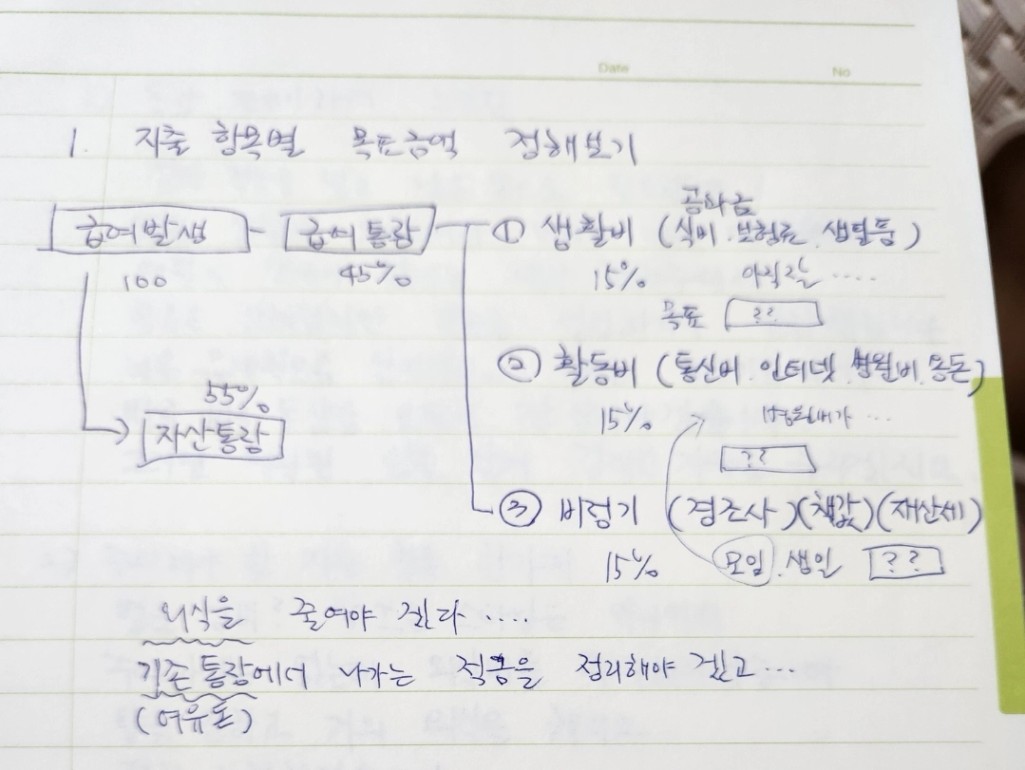 Date No
1. 지출 항목별 목표금액 정해보기
공과금
급여발생 급여통장 ① 생활비 (식비.보험료.생필품)
100 45% 15%
목표 ??
② 활동비 (통신비.인터넷.병원비.용돈)
55% 15%
자산통장 ??
③ 비정기 (경조사)(책값)(재산세)
15% 모임.생일 ??
외식을 줄여야 겠다.....
기존통장에서 나가는 적금을 정리해야 겠고...
(여유돈)